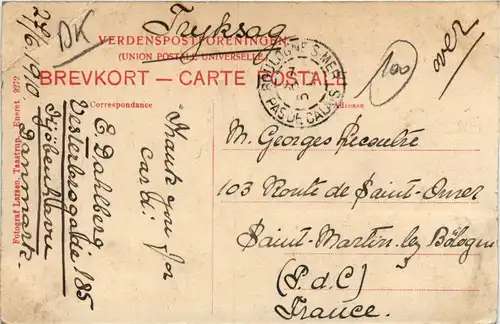 Tryksag
DK
VERDENSPOSTFORENINGEN
(UNION POSTALE UNIVERSELLE)
BREVKORT — CARTE POSTALE
BOULOGNE S. MER
PAS DE CALAIS
100
over
Correspondance
Adresse
22/6. 1910
Thank you for
card.
E. Dahlberg
Vesterbrogade 185
Kjöbenhavn
Danmark
M. Georges Lecoultre
103 Route de Saint-Omer
Saint-Martin-lez-Bologne
(P.d.C)
France.
Fotograf Larsen, Taastrup. Eneret 9272